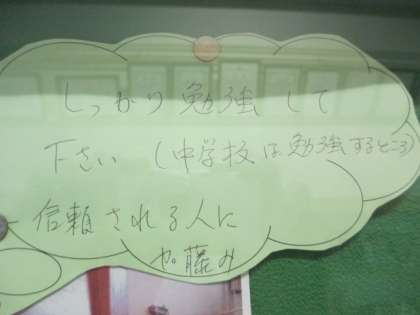 しっかり勉強して
下さい (中学校は勉強するところ)
信頼される人に
加藤み